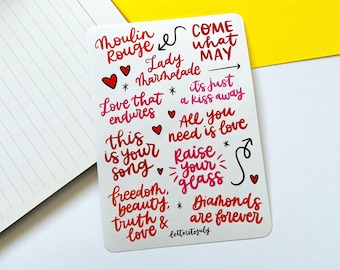 Moulin
Rouge
COME
what
MAY
Lady
Marmalade
Love that
endures
it's just
a kiss away
This
is your
song
All you
need is love
Raise
your
glass
freedom,
beauty,
truth &
love
Diamonds
are forever